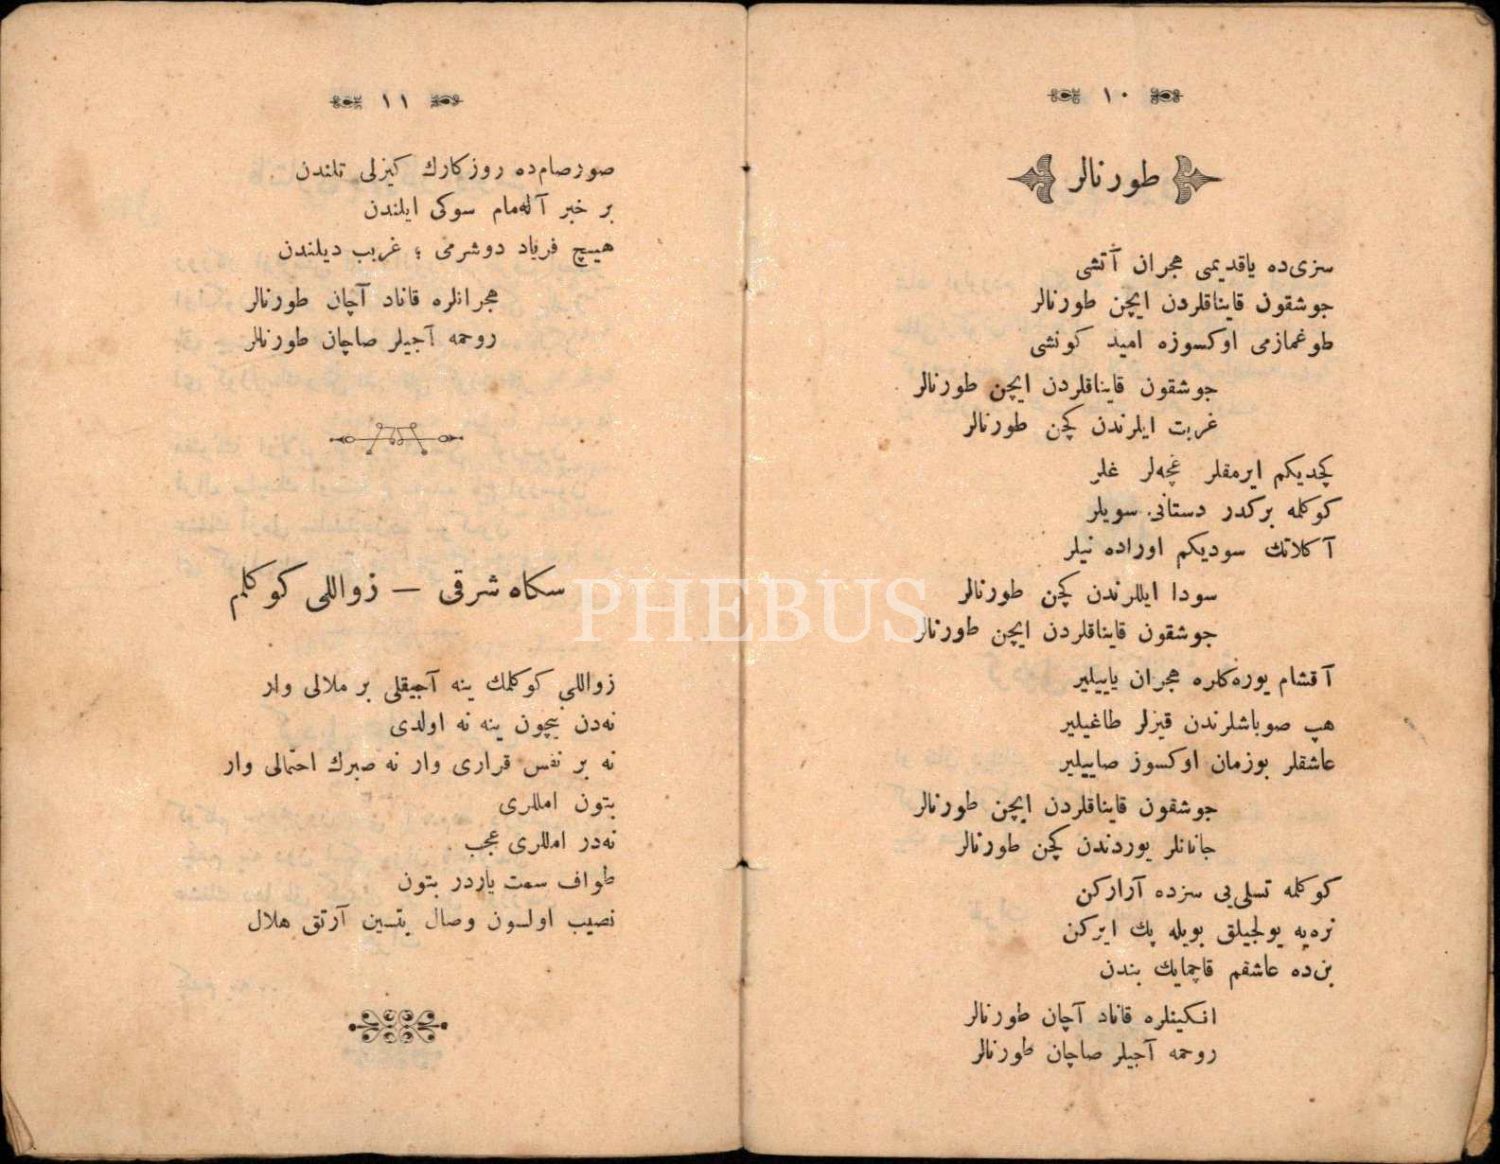 ١٠
طورنالر
سزی‌ده یاقدیمی هجران آتشی
جوشقون قایناقلردن ایچن طورنالر
طوغمازمی اوکسوزه امید کونشی
جوشقون قایناقلردن ایچن طورنالر
غربت ایلرندن کچن طورنالر
کچدیکم ایرمقلر غچه‌لر غلر
کوکلمه برکدر دستانی سویلر
آکلاتك سودیکم اوراده نیلر
سودا ایللرندن کچن طورنالر
جوشقون قایناقلردن ایچن طورنالر
آقشام یوره‌کلره هجران یاییلیر
هپ صوباشلرندن قیزلر طاغیلیر
عاشقلر بوزمان اوکسوز صاییلیر
جوشقون قایناقلردن ایچن طورنالر
جانانلر یوردندن کچن طورنالر
کوکلمه تسلی‌یی سزده آرارکن
نره‌یه یولجیلق بویله پك ایرکن
بن‌ده عاشقم قاچمایك بندن
انکینلره قاناد آچان طورنالر
روحمه آجیلر صاچان طورنالر
١١
صورصام‌ده روزکارك کیزلی تلندن
بر خبر آله‌مام سوکی ایلندن
هیچ فریاد دوشرمی ؛ غریب دیلندن
هجرانلره قاناد آچان طورنالر
روحمه آجیلر صاچان طورنالر
سکاه شرقی — زواللی کوکلم
زواللی کوکلمك ینه آجیقلی بر ملالی وار
نه‌دن بیچون ینه نه اولدی
نه بر نفس قراری وار نه صبرك احتمالی وار
بتون امللری
نه‌در امللری عجب
طواف سمت یاردر بتون
نصیب اولسون وصال یتسین آرتق هلال
PHEBUS